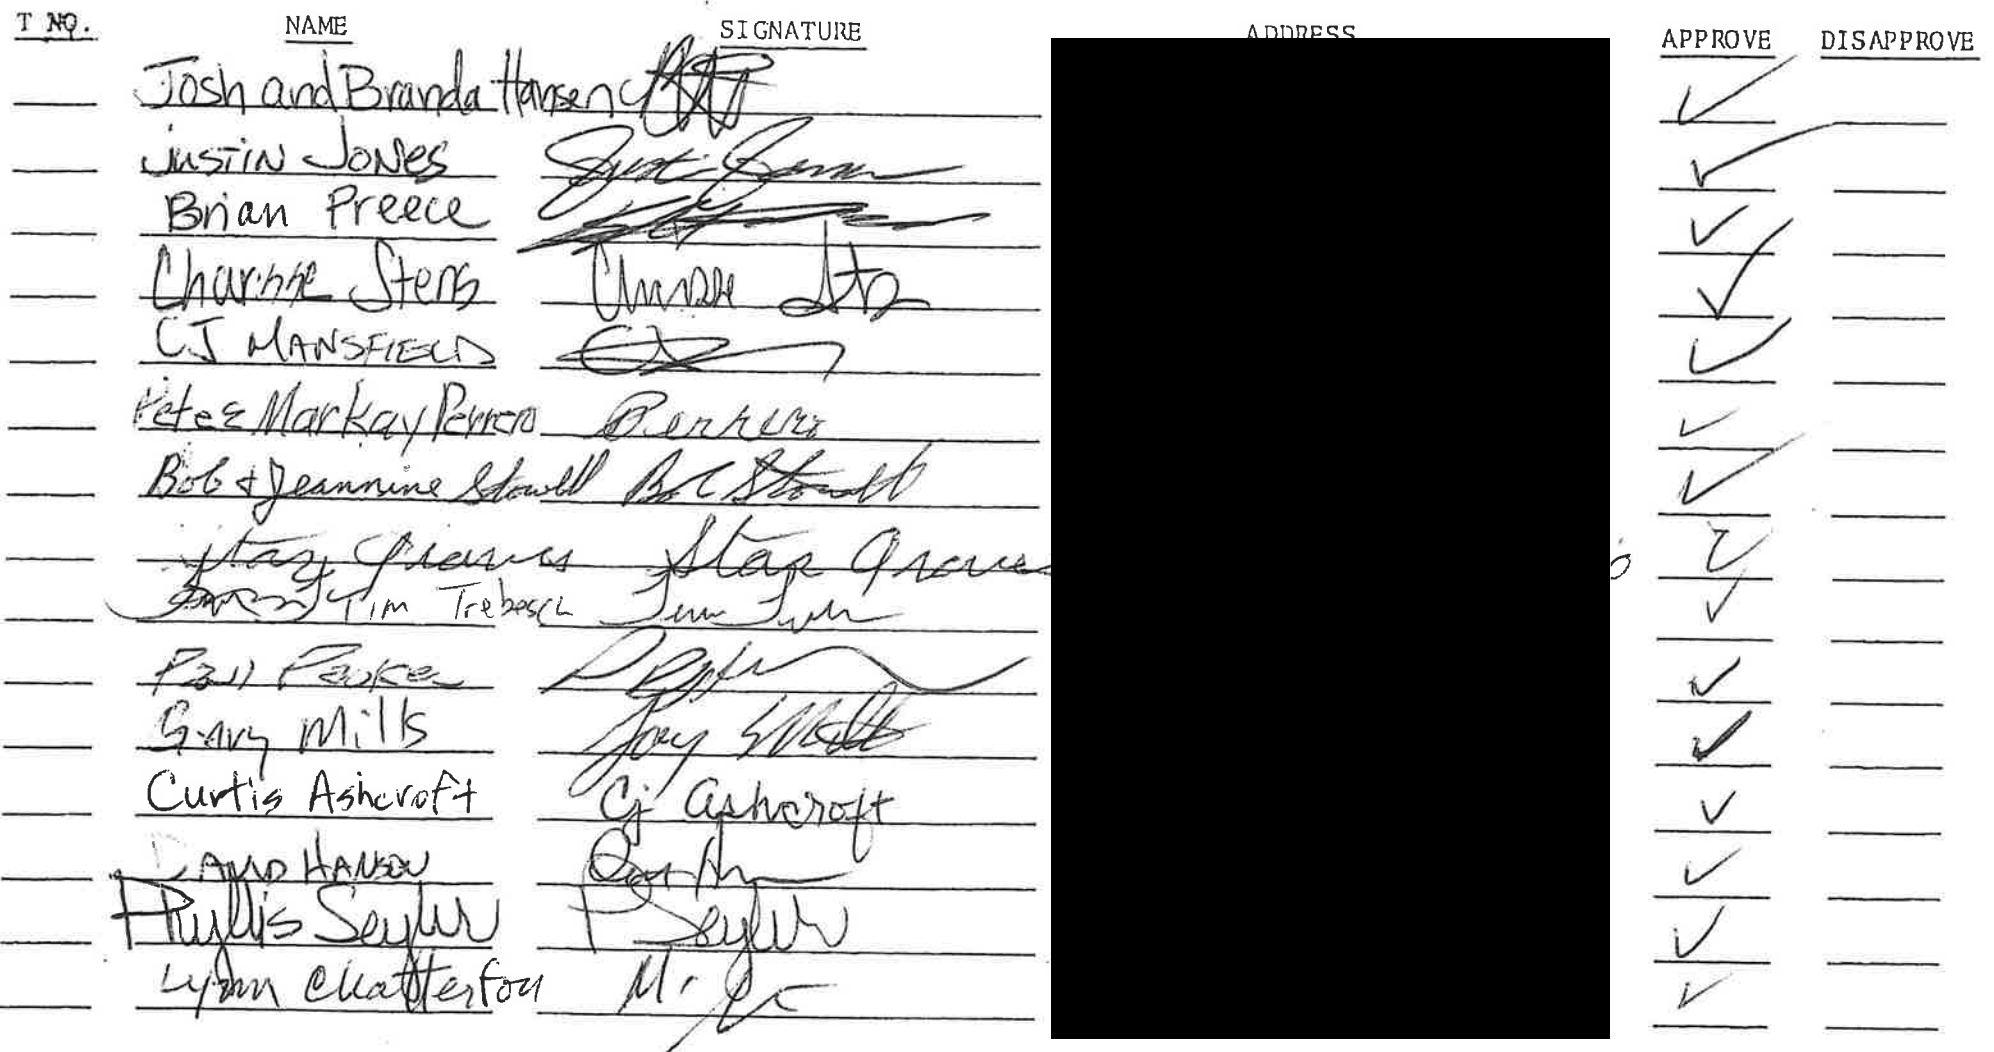 T NO. NAME SIGNATURE ADDRESS APPROVE DISAPPROVE
Josh and Branda Hansen
Justin Jones
Brian Preece
Charisse Stens
CJ MANSFIELD
Pete & Markay Perrero Perrero
Bob & Jeannine Stowell Bob Stowell
Stay Graves Stay Graves
Tim Trebesch
Paul Parker
Gary Mills Gary Mills
Curtis Ashcroft Cj Ashcroft
DAVID HANSON
Phyllis Seyler P Seyler
Lynn Chatterton